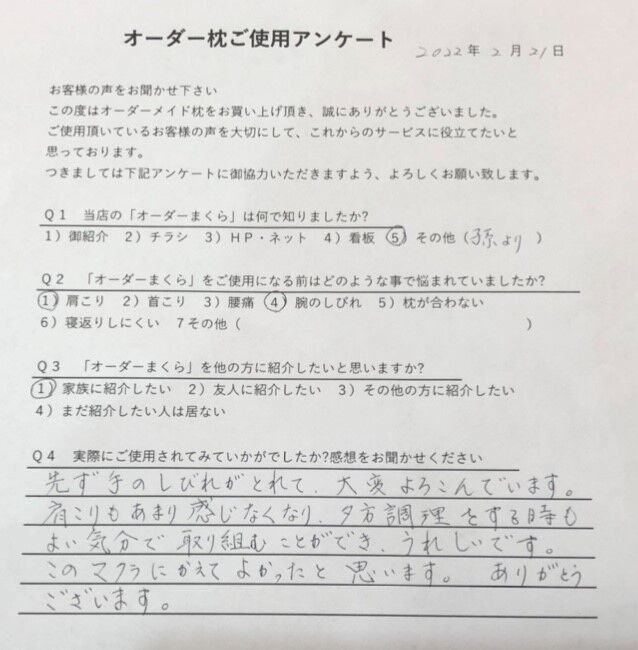 オーダー枕ご使用アンケート
2022年2月21日
お客様の声をお聞かせ下さい
この度はオーダーメイド枕をお買い上げ頂き、誠にありがとうございました。
ご使用頂いているお客様の声を大切にして、これからのサービスに役立てたいと
思っております。
つきましては下記アンケートに御協力いただきますよう、よろしくお願い致します。
Q1 当店の「オーダーまくら」は何で知りましたか?
1）御紹介 2）チラシ 3）HP・ネット 4）看板 5）その他（孫より）
Q2 「オーダーまくら」をご使用になる前はどのような事で悩まれていましたか?
1）肩こり 2）首こり 3）腰痛 4）腕のしびれ 5）枕が合わない
6）寝返りしにくい 7その他（ ）
Q3 「オーダーまくら」を他の方に紹介したいと思いますか?
1）家族に紹介したい 2）友人に紹介したい 3）その他の方に紹介したい
4）まだ紹介したい人は居ない
Q4 実際にご使用されてみていかがでしたか?感想をお聞かせください
先ず手のしびれがとれて、大変よろこんでいます。
肩こりもあまり感じなくなり、夕方調理をする時も
よい気分で取り組むことができ、うれしいです。
このマクラにかえてよかったと思います。ありがとう
ございます。